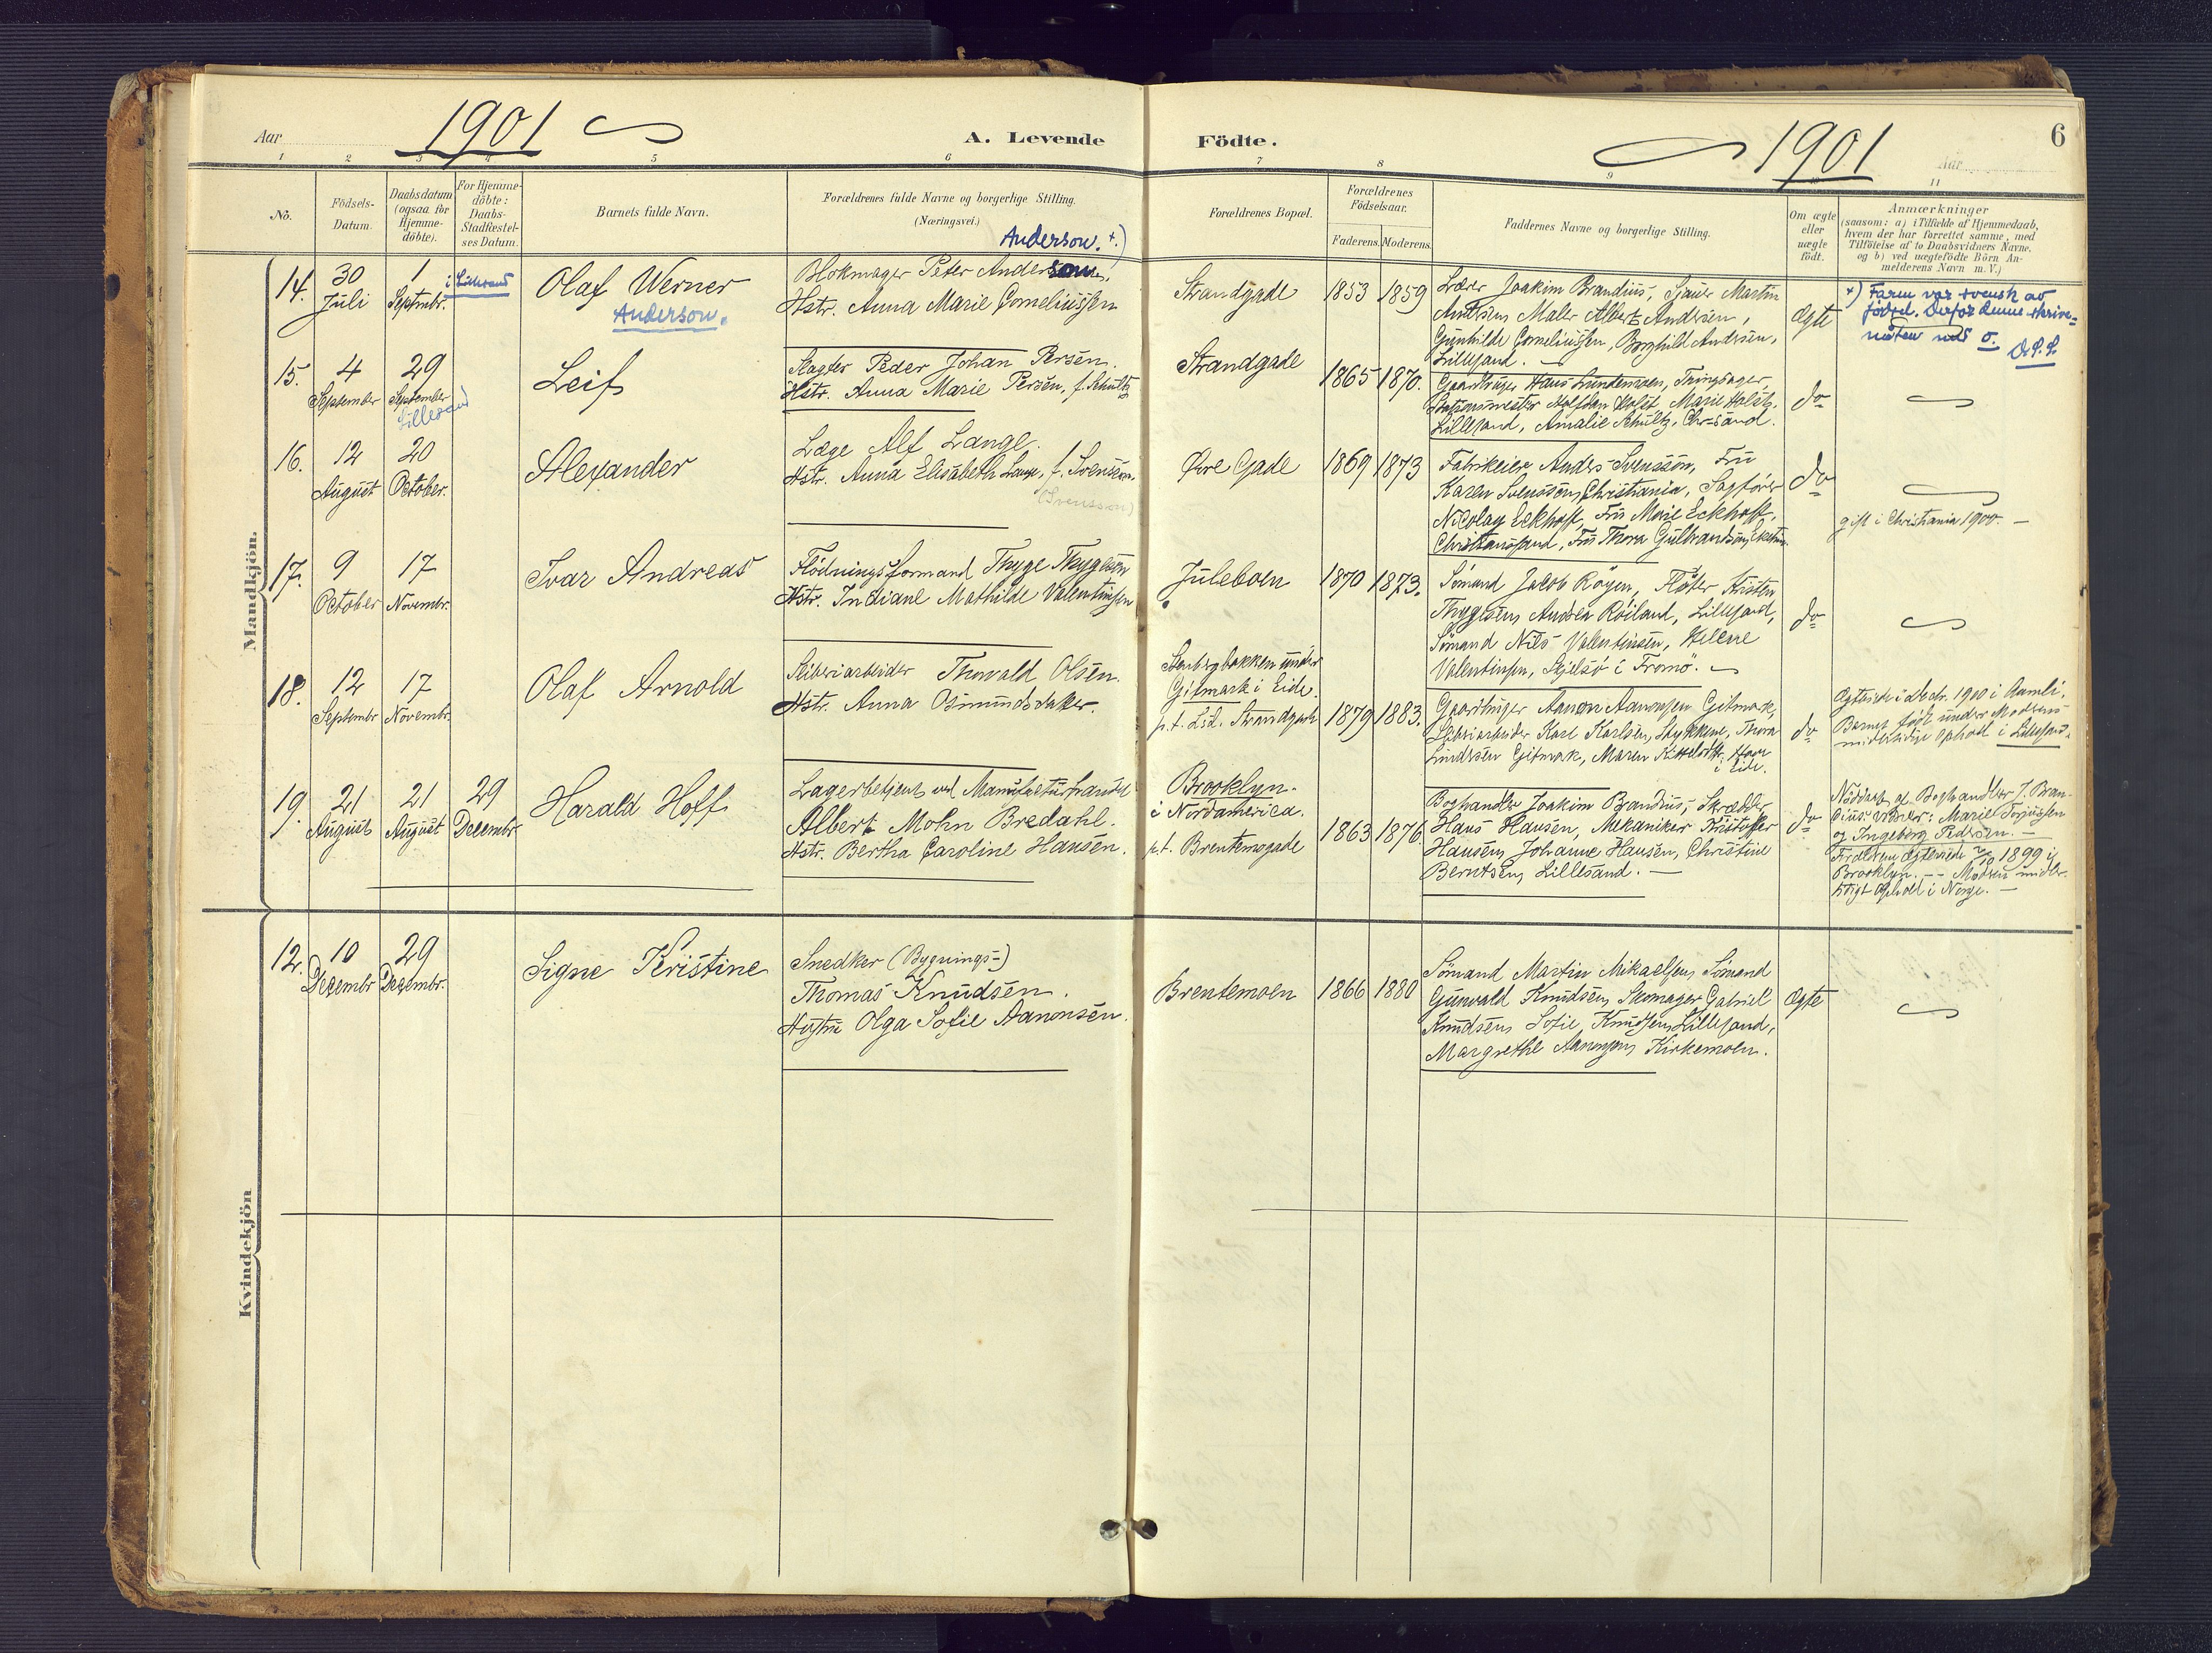 Aar 1901
A. Levende Födte.
1901 Aar
6
1 2 3 4 5 6 7 8 9 10 11
No.
Födsels-
Datum.
Daabsdatum
(ogsaa for
Hjemme-
döbte).
For Hjemme-
döbte:
Daabs-
Stadfæstel-
ses Datum.
Barnets fulde Navn.
Forældrenes fulde Navne og borgerlige Stilling.
(Næringsvei.)
Forældrenes Bopæl.
Forældrenes
Födselsaar.
Faderens. Moderens.
Faddernes Navne og borgerlige Stilling.
Om ægte
eller
uægte
födt.
Anmærkninger
(saasom: a) i Tilfælde af Hjemmedaab,
hvem der har forrettet samme, med
Tilföielse af to Daabsvidners Navne.
og b) ved uægtefödte Börn An-
melderens Navn m. V.)
Mandkjön.
14.
30
Juli
1
Septmbr.
i Lillesand
Olaf Werner
Anderson.
Anderson. +)
Blokmager Peter Anderson,
Hstr. Anna Marie Corneliussen
Strandgade
1853 1859
Lærer Joakim Brandius, Sjauer Martin
Andersen Maler Albert Andersen,
Gunhilde Corneliussen, Borghild Andersen,
Lillesand.
Ægte
+) Faren var svensk av
födsel. Derfor denne skrive-
måten med o.
15.
4
September
29
September
Lillesand
Leif
Slagter Peder Johan Persen.
Hstr. Anna Marie Persen, f. Schultz
Strandgade
1865 1870.
Gaardbruger Hans Lundemoen, Tringsager,
Stationsmester Halfdan Holst Marie Holst,
Lillesand, Amalie Schultz, Chr-sand.
do
16.
12
August
20
October.
Alexander
Læge Alf Lange.
Hstr. Anna Elisabeth Lange, f. Svensson.
(Svensson)
Övre Gade
1869 1873
Fabrikeier Anders Svensson, Fru
Karen Svensson, Christiania, Sagförer
Nicolay Eckhoff, Fru Marie Eckhoff,
Christianssand, Fru Thora Gulbrandsen,
do
gift i Christiania 1900.
17.
9
October
17
Novembr.
Ivar Andreas
Flödningsformand Thyge Thygesen
Hstr. Indiane Mathilde Valentinsen
Juleboen
1870 1873.
Sömand Jacob Röyen, Flöter Kristen
Thygesen Andrea Röiland, Lillesand,
Sömand Nils Valentinsen, Helene
Valentinsen, Skjelsö i Tromö.
do
18.
12
Septembr
17
Novembr.
Olaf Arnold
Sliberiarbeider Thorvald Olsen.
Hstr. Anna Osmundsdatter.
Stenbergbakken under
Gitmark i Eide.
p.t. Lsd. Strandgade
1879 1883.
Gaardbruger Aanon Aanonsen Gitmark,
Sliberiarbeider Karl Karlsen, Stykkene, Thora
Lindesen Gitmark, Maren Kittelsdtr. Hove
i Eide.
do
Ægteviede i Decbr. 1900 i Aamli.
Barnet födt under Moderens
midlertidige Ophold i Lillesand.
19.
21
August
21
August
29
Decembr.
Harald Hoff
Lagerbetjent ved Manufacturhandel
Albert Mohn Bredahl.
Hstr. Bertha Caroline Hansen.
Brooklyn.
i Nordamerica.
p.t. Brentemogade
1863 1876
Boghandler Joakim Brandius, Skrædder
Hans Hansen, Mekaniker Kristoffer
Hansen, Johanne Hansen, Christine
Berntsen, Lillesand.
do
Nöddöbt af Boghandler J. Bran-
dius. Vidner: Marie Torjussen
og Ingeborg Pedersen.
Forældrene ægteviede 1899 i
Brooklyn. Moderen midler-
tidigt Ophold i Norge.
Kvindekjön
12.
10
Decembr
29
Decembr.
Signe Kristine
Snedker (Bygnings-)
Thomas Knudsen.
Hustru Olga Sofie Aanonsen.
Brentemoen
1866 1880
Sömand Martin Mikaelsen, Sömand
Gunvald Knudsen, Skomager Gabriel
Knudsen, Sofie Knudsen, Lillesand,
Margrethe Aanonsen, Kirkemoen.
Ægte